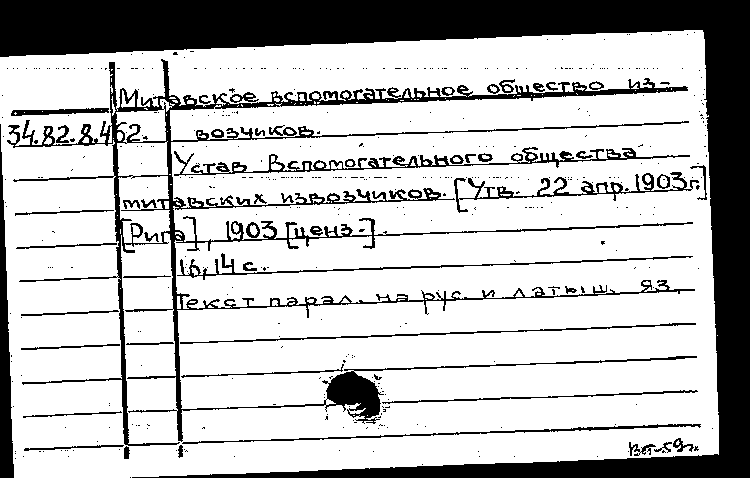 Митавское вспомогательное общество из-
34.82.8.462. возчиков.
Устав Вспомогательного общества
митавских извозчиков. [Утв. 22 апр. 1903г.]
[Рига], 1903 [ценз.].
16, 14 с.
Текст парал. на рус. и латыш. яз.